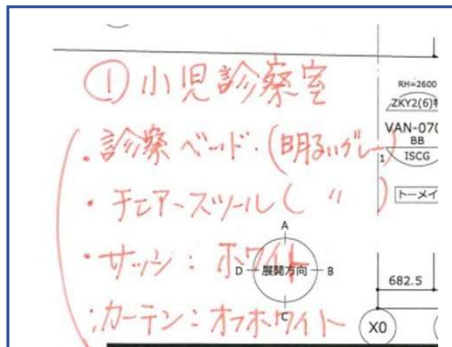 ①小児診察室
・診察ベッド・(明るいグレー)
・チェアースツール( 〃 )
・サッシ：ホワイト
・カーテン：オフホワイト
RH=2600
ZKY2(6)
VAN-070
BB
ISCG
1
トーメイ
A
D 展開方向 B
C
682.5
X0